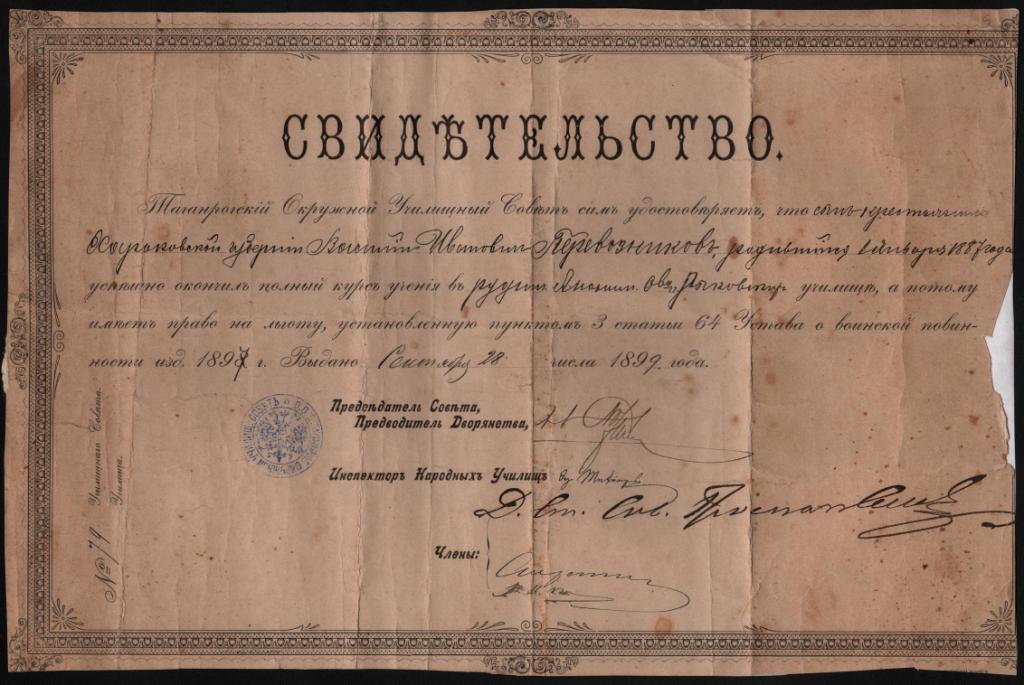 СВИДѢТЕЛЬСТВО.
Таганрогскій Окружной Училищный Совѣтъ симъ удостовѣряетъ, что сынъ крестьянина
Харьковской губерніи Василій Ивановичъ Перевозниковъ, родившійся 1 января 1887 года
успѣшно окончилъ полный курсъ ученія въ училищѣ, а потому
имѣетъ право на льготу, установленную пунктомъ 3 статьи 64 Устава о воинской повин-
ности изд. 1897 г. Выдано Сентября 28 числа 1899 года.
Предсѣдатель Совѣта,
Предводитель Дворянства,
Инспекторъ Народныхъ Училищъ
Д. Ст. Сов.
Члены:
№ 79 Училищнаго Совѣта.
Училища.